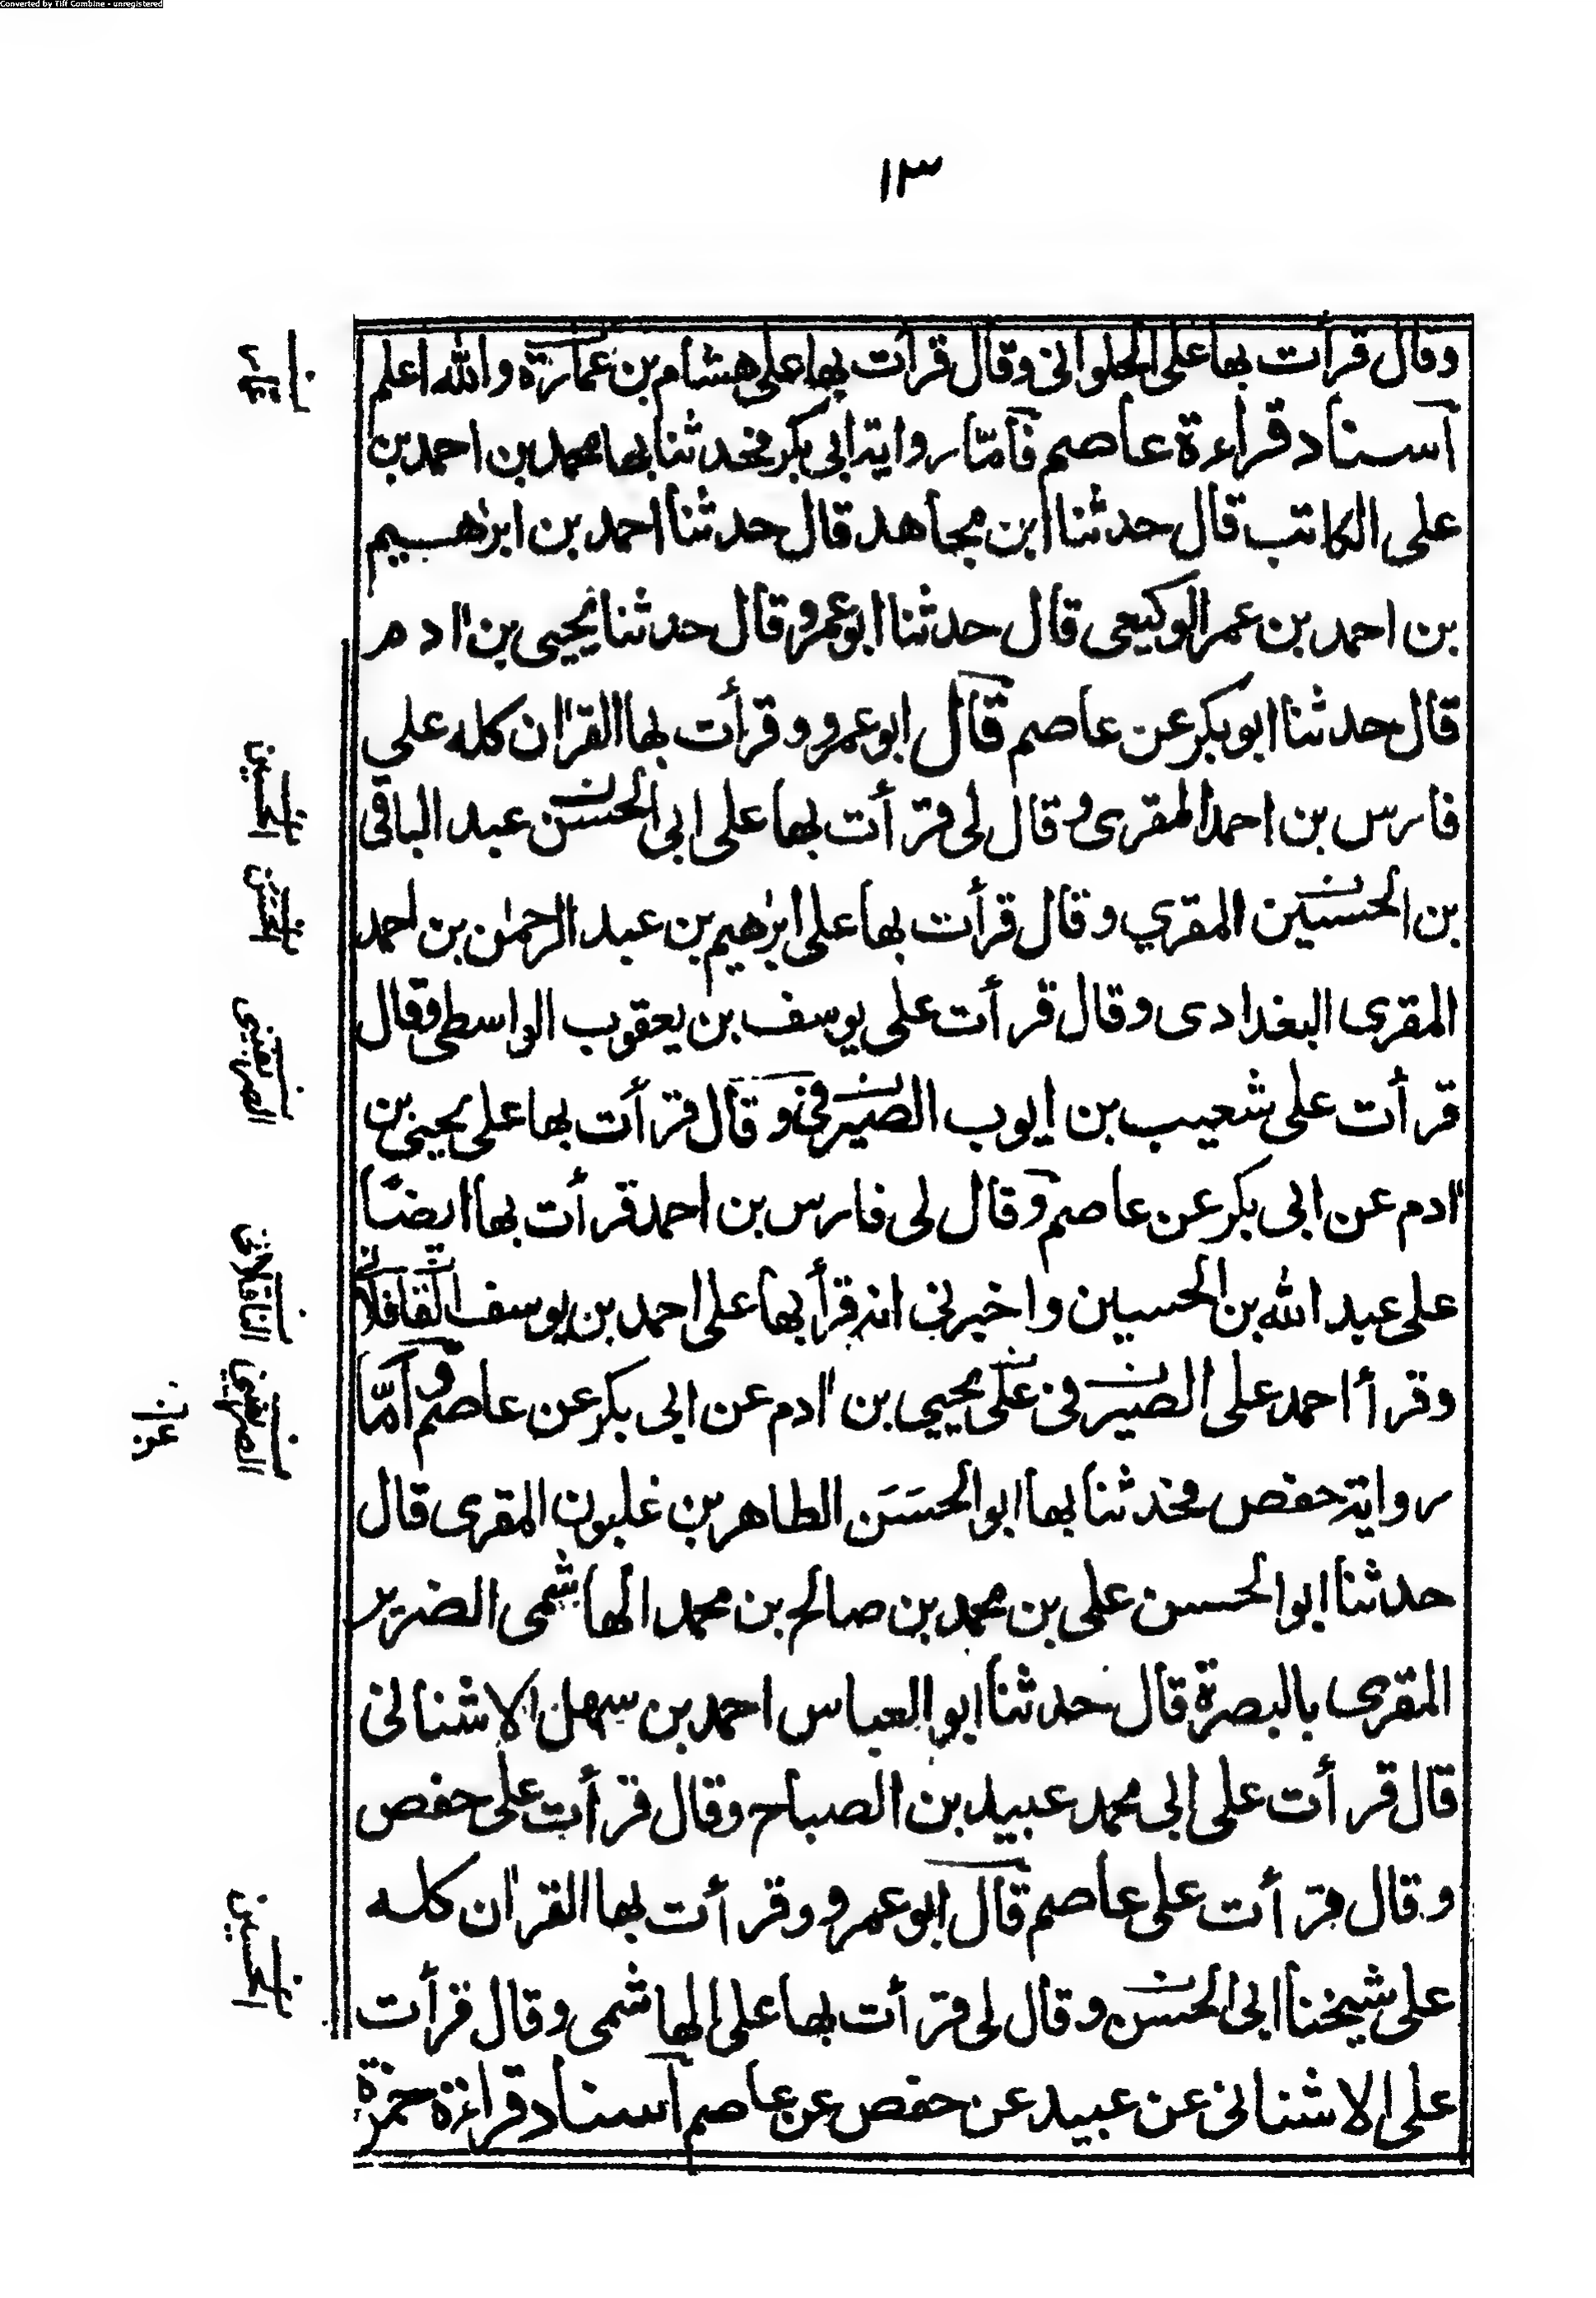 Converted by Tiff Combine - unregistered
١٣
وقال قرأت بها على الحلوانى وقال قرأت بها على هشام بن عمارة والله اعلم
اسناد قراءة عاصم فأمّا رواية ابى بكر فحدثنا بها محمد بن احمد بن
على الكاتب قال حدثنا ابن مجاهد قال حدثنا احمد بن ابرٰهيم
بن احمد بن عمر الوكيعى قال حدثنا ابو عمرو قال حدثنا يحيى بن اٰدم
قال حدثنا ابو بكر عن عاصم قال ابو عمرو وقرأت بها القراٰن كله على
فارس بن احمد المقرى وقال لى قرأت بها على ابى الحسن عبد الباقى
بن الحسين المقري وقال قرأت بها على ابرٰهيم بن عبد الرحمٰن بن احمد
المقرى البغدادى وقال قرأت على يوسف بن يعقوب الواسطى وقال
قرأت على شعيب بن ايوب الصيرفى وقال قرأت بها على يحيى بن
اٰدم عن ابى بكر عن عاصم وقال لى فارس بن احمد قرأت بها ايضًا
على عبد الله بن الحسين واخبرنى انه قرأ بها على احمد بن يوسف القافلانى
وقرأ احمد على الصيرفى على يحيى بن اٰدم عن ابى بكر عن عاصم وامّا
رواية حفص فحدثنا بها ابو الحسَن الطاهر بن غلبون المقرى قال
حدثنا ابو الحسن على بن محمد بن صالح بن محمد الهاشمى الضرير
المقرى بالبصرة قال حدثنا ابو العباس احمد بن سهل الاشنانى
قال قرأت على ابى محمد عبيد بن الصباح وقال قرأت على حفص
وقال قرأت على عاصم قال ابو عمرو وقرأت بها القراٰن كله
على شيخنا ابى الحسن وقال لى قرأت بها على الهاشمى وقال قرأت
على الاشنانى عن عبيد عن حفص عن عاصم اسناد قراءة حمزة
الحسين
الحسن
الحسين